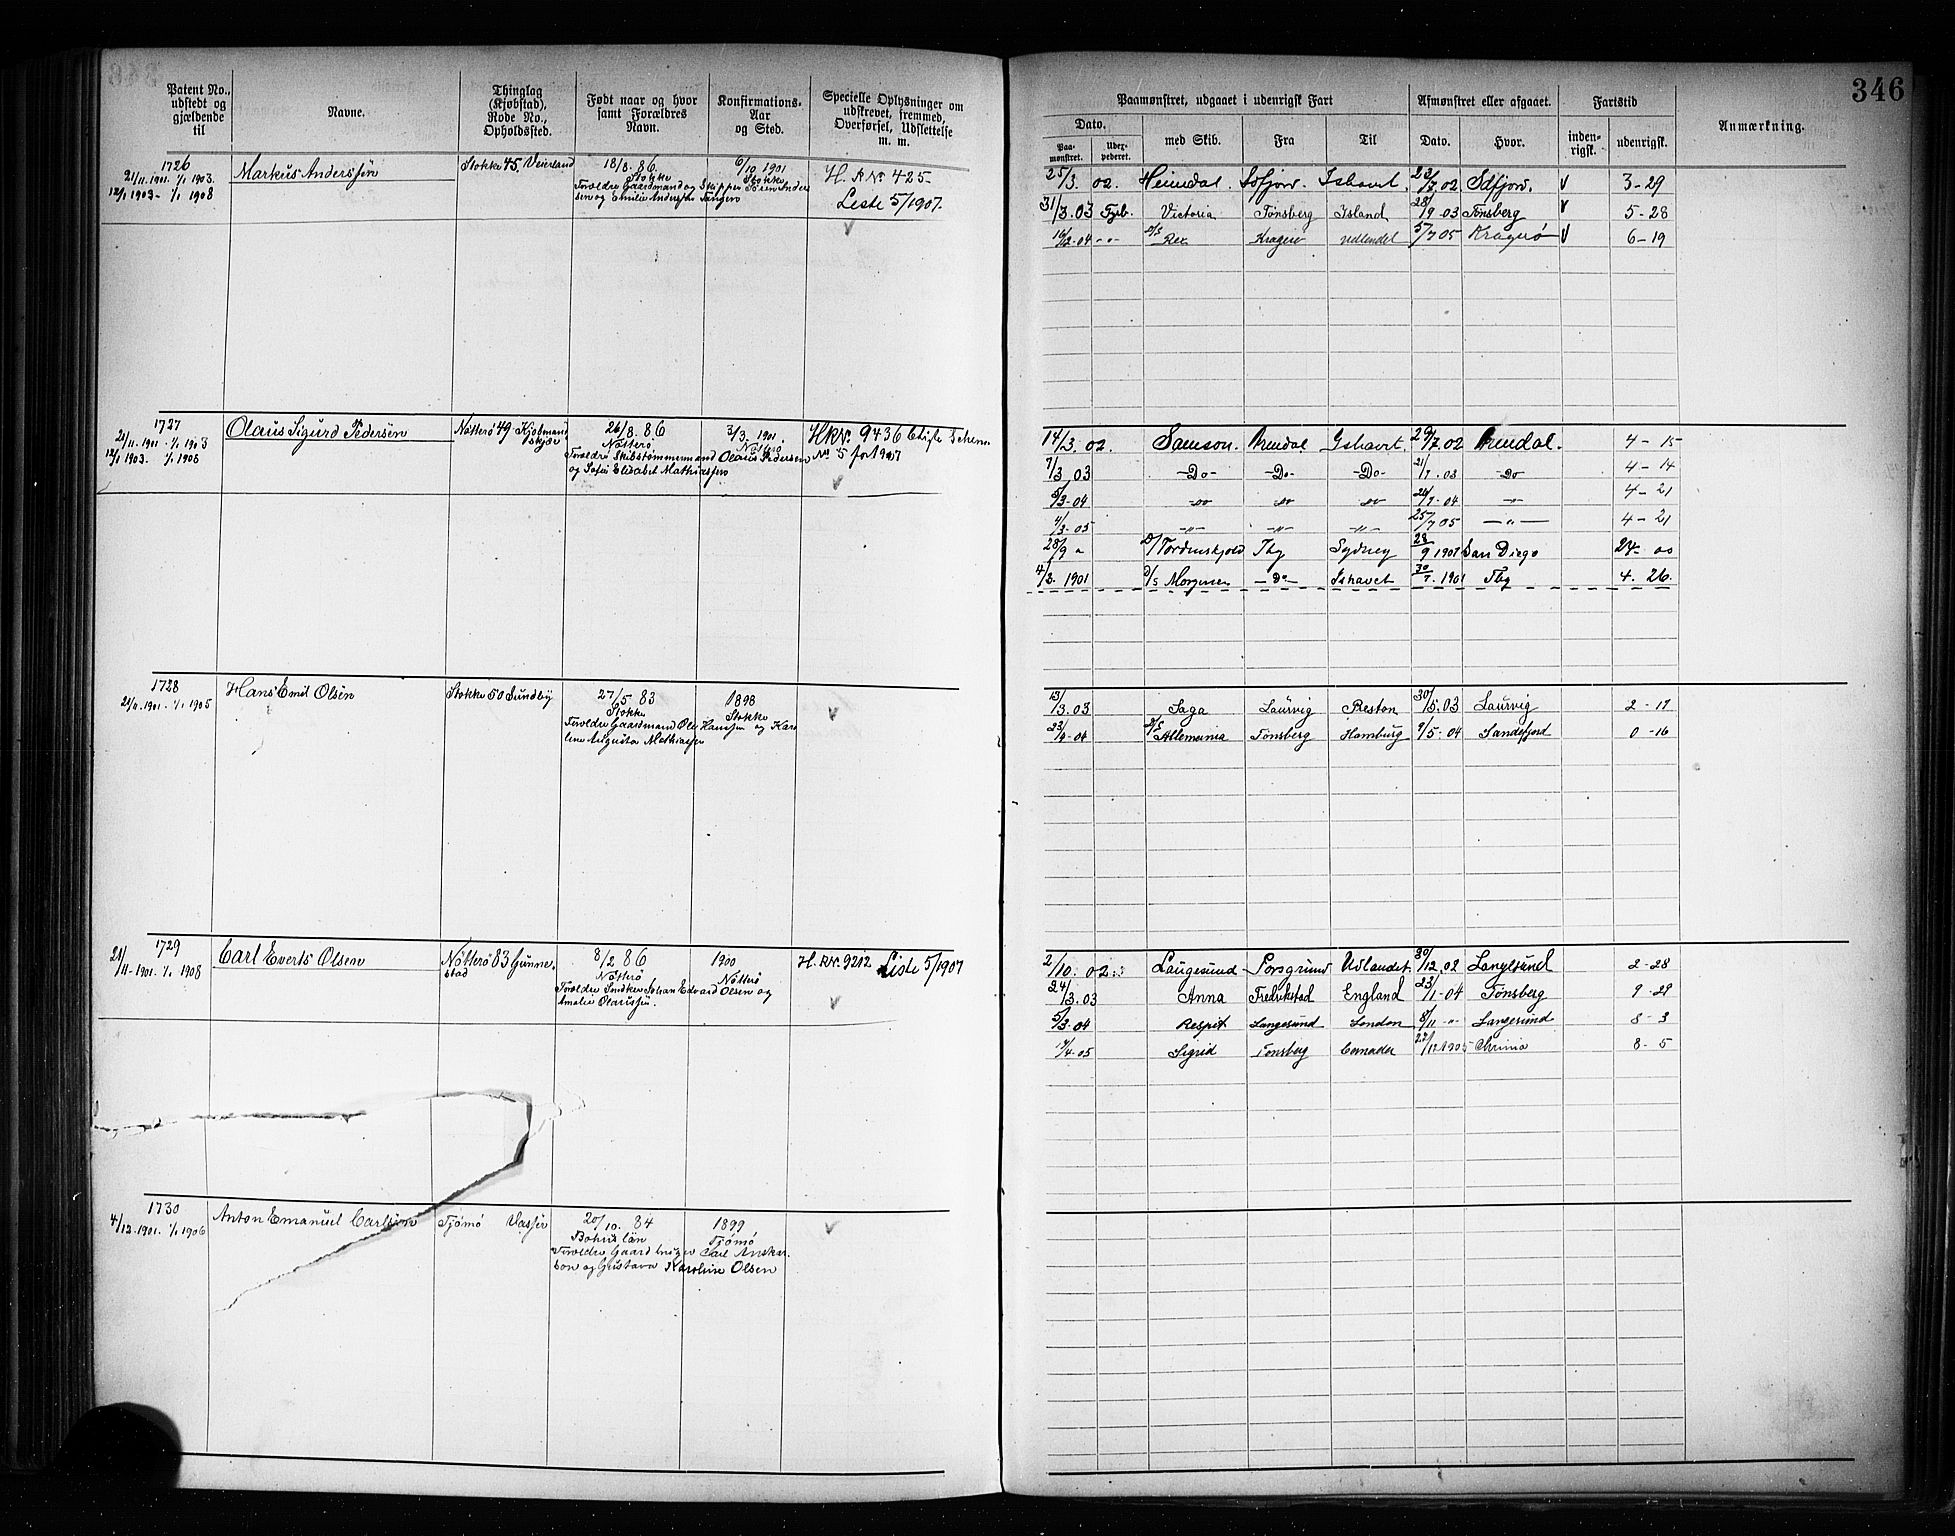 346
Patent No., udstedt og gjældende til
Navne.
Thinglag (Kjøbstad), Rode No., Opholdssted.
Født naar og hvor samt Forældres Navn.
Konfirmations-Aar og Sted.
Specielle Oplysninger om udskrevet, fremmed, Overførsel, Udslettelse m. m.
Paamønstret, udgaaet i udenrigsk Fart
Afmønstret eller afgaaet.
Fartstid
Anmærkning.
Dato.
Paa-mønstret.
med Skib.
Fra
Til
Dato.
Hvor.
inden-rigsk.
udenrigsk.
1726
21/11.1901. 1/1 1903.
12/1 1903 - 1/1 1908
Markus Anderssen
Stokke 45. Veierland
18/8. 86.
Stokke
6/10 1901
Stokke
H. R Nr. 425-
Liste 5/1907.
25/3. 02. Heimdal. Ishavet. 23/7 02 3-29
31/3.03 Victoria Tønsberg Island 28/9 03 Tønsberg 5-28
16/2-04 D/S Rex Kragerø Udlandet 5/7 05 Kragerø 6-19
1727
21/11.1901 - 1/1 1903
12/1 1903. 1/1 1906
Olaus Sigurd Pedersen
Nøtterø 49
26/8. 86
Nøtterø
Forældre Skibstømmermand Olaus Pedersen
og Sofie Elisabet Mathiassen
3/3. 1901.
Nøtterø
HRNr. 9436
Nr 5 for 1907
14/3. 02. Samson. Arendal Ishavet. 29/7 02 Arendal. 4-15
7/3 03 -Do- -Do- -Do- 21/7. 03 -Do 4-14
8/3-04 -do -do -do 24/7-04 -"- 4-21
4/3-05 -"- -"- -"- 25/7 05 -"- 4-21
28/9 " Tordenskjold Tbg Sydney 28/9 1907 San Diego 24- 00
4/3. 1901 D/S Morgenen -Do- Ishavet 30/7. 1901 Tbg 4. 26.
1728
21/11.1901. 1/1 1905
Hans Emil Olsen
Stokke 50 Sundby
27/5 83
Stokke
Forældre Gaardmand Ole Hanssen og Karo
line Augusta Mathiassen
1898
Stokke
13/3.03 Saga Laurvig Preston 30/5.03 Laurvig 2-17
23/4-04 D/S Allemania Tønsberg Hamburg 9/5-04 Sandefjord 0-16
1729
21/11-1901. 1/1 1908
Carl Everts Olsen
Nøtterø 83 Gunne-
stad
8/2 86
Nøtterø
Forældre Snedker Johan Edvard Olsen og
Amalie Olaussen.
1900
Nøtterø
H. RNr. 9212 Liste 5/1907
2/10. 02. Langesund Porsgrund Udlandet 30/12.02 Langesund 2-28
24/3.03 Anna Fredrikstad England 23/1-04 Tønsberg 9-29
5/3-04 Respit Langesund London 8/11 -"- Langesund 8-3
17/4-05 Sigrid Tønsberg Canada 22/12 1905 8-5
1730
4/12.1901. 1/1 1906
Anton Emanuel Carlsson
Tjømø Vasser
20/10. 84
Bohus län
Forældre Gaardbruger Carl Anskar.
son og Gustava Karoline Olsen
1899
Tjømø